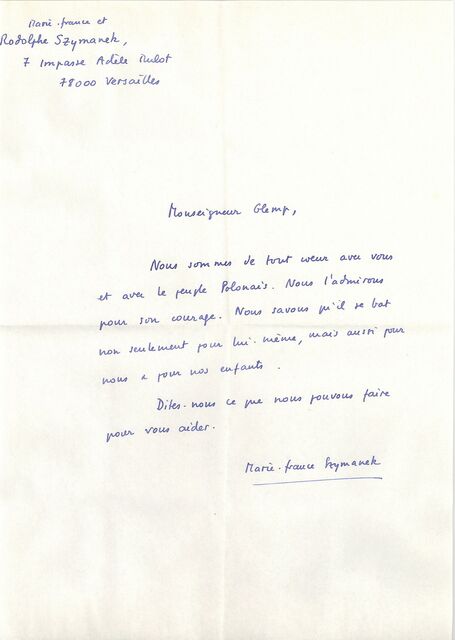 Marie-france et
Rodolphe Szymanek,
7 Impasse Adèle Mulot
78000 Versailles
Monseigneur Glemp,
Nous sommes de tout cœur avec vous
et avec le peuple Polonais. Nous l'admirons
pour son courage. Nous savons qu'il se bat
non seulement pour lui-même, mais aussi pour
nous & pour nos enfants.
Dites-nous ce que nous pouvons faire
pour vous aider.
Marie-france Szymanek